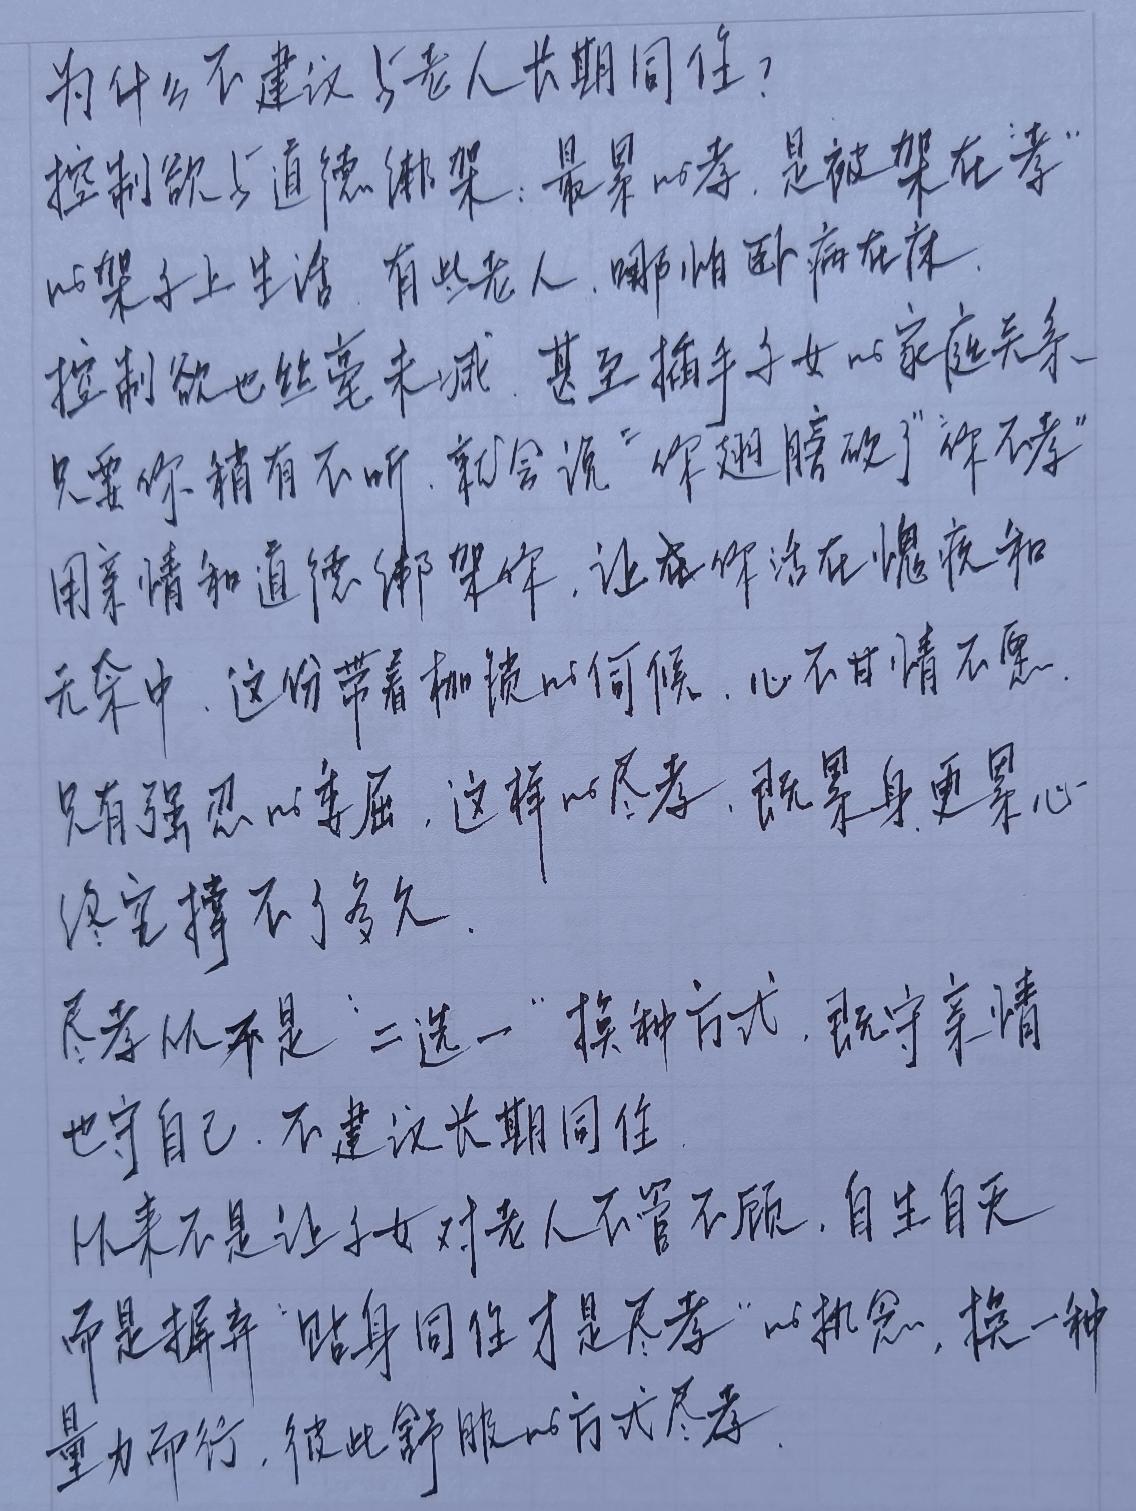 为什么不建议与老人长期同住？
控制欲与道德绑架：最累的孝，是被架在“孝”
的架子上生活，有些老人，哪怕卧病在床，
控制欲也丝毫未减，甚至插手子女的家庭关系
只要你稍有不听，就会说“你翅膀硬了”“你不孝”
用亲情和道德绑架你，让你活在愧疚和
无奈中，这份带着枷锁的伺候，心不甘情不愿，
只有强忍的委屈，这样的尽孝，既累身，更累心
终究撑不了多久。
尽孝从不是“二选一”换种方式，既守亲情
也守自己，不建议长期同住，
从来不是让子女对老人不管不顾，自生自灭
而是摒弃“贴身同住才是尽孝”的执念，换一种
量力而行，彼此舒服的方式尽孝。